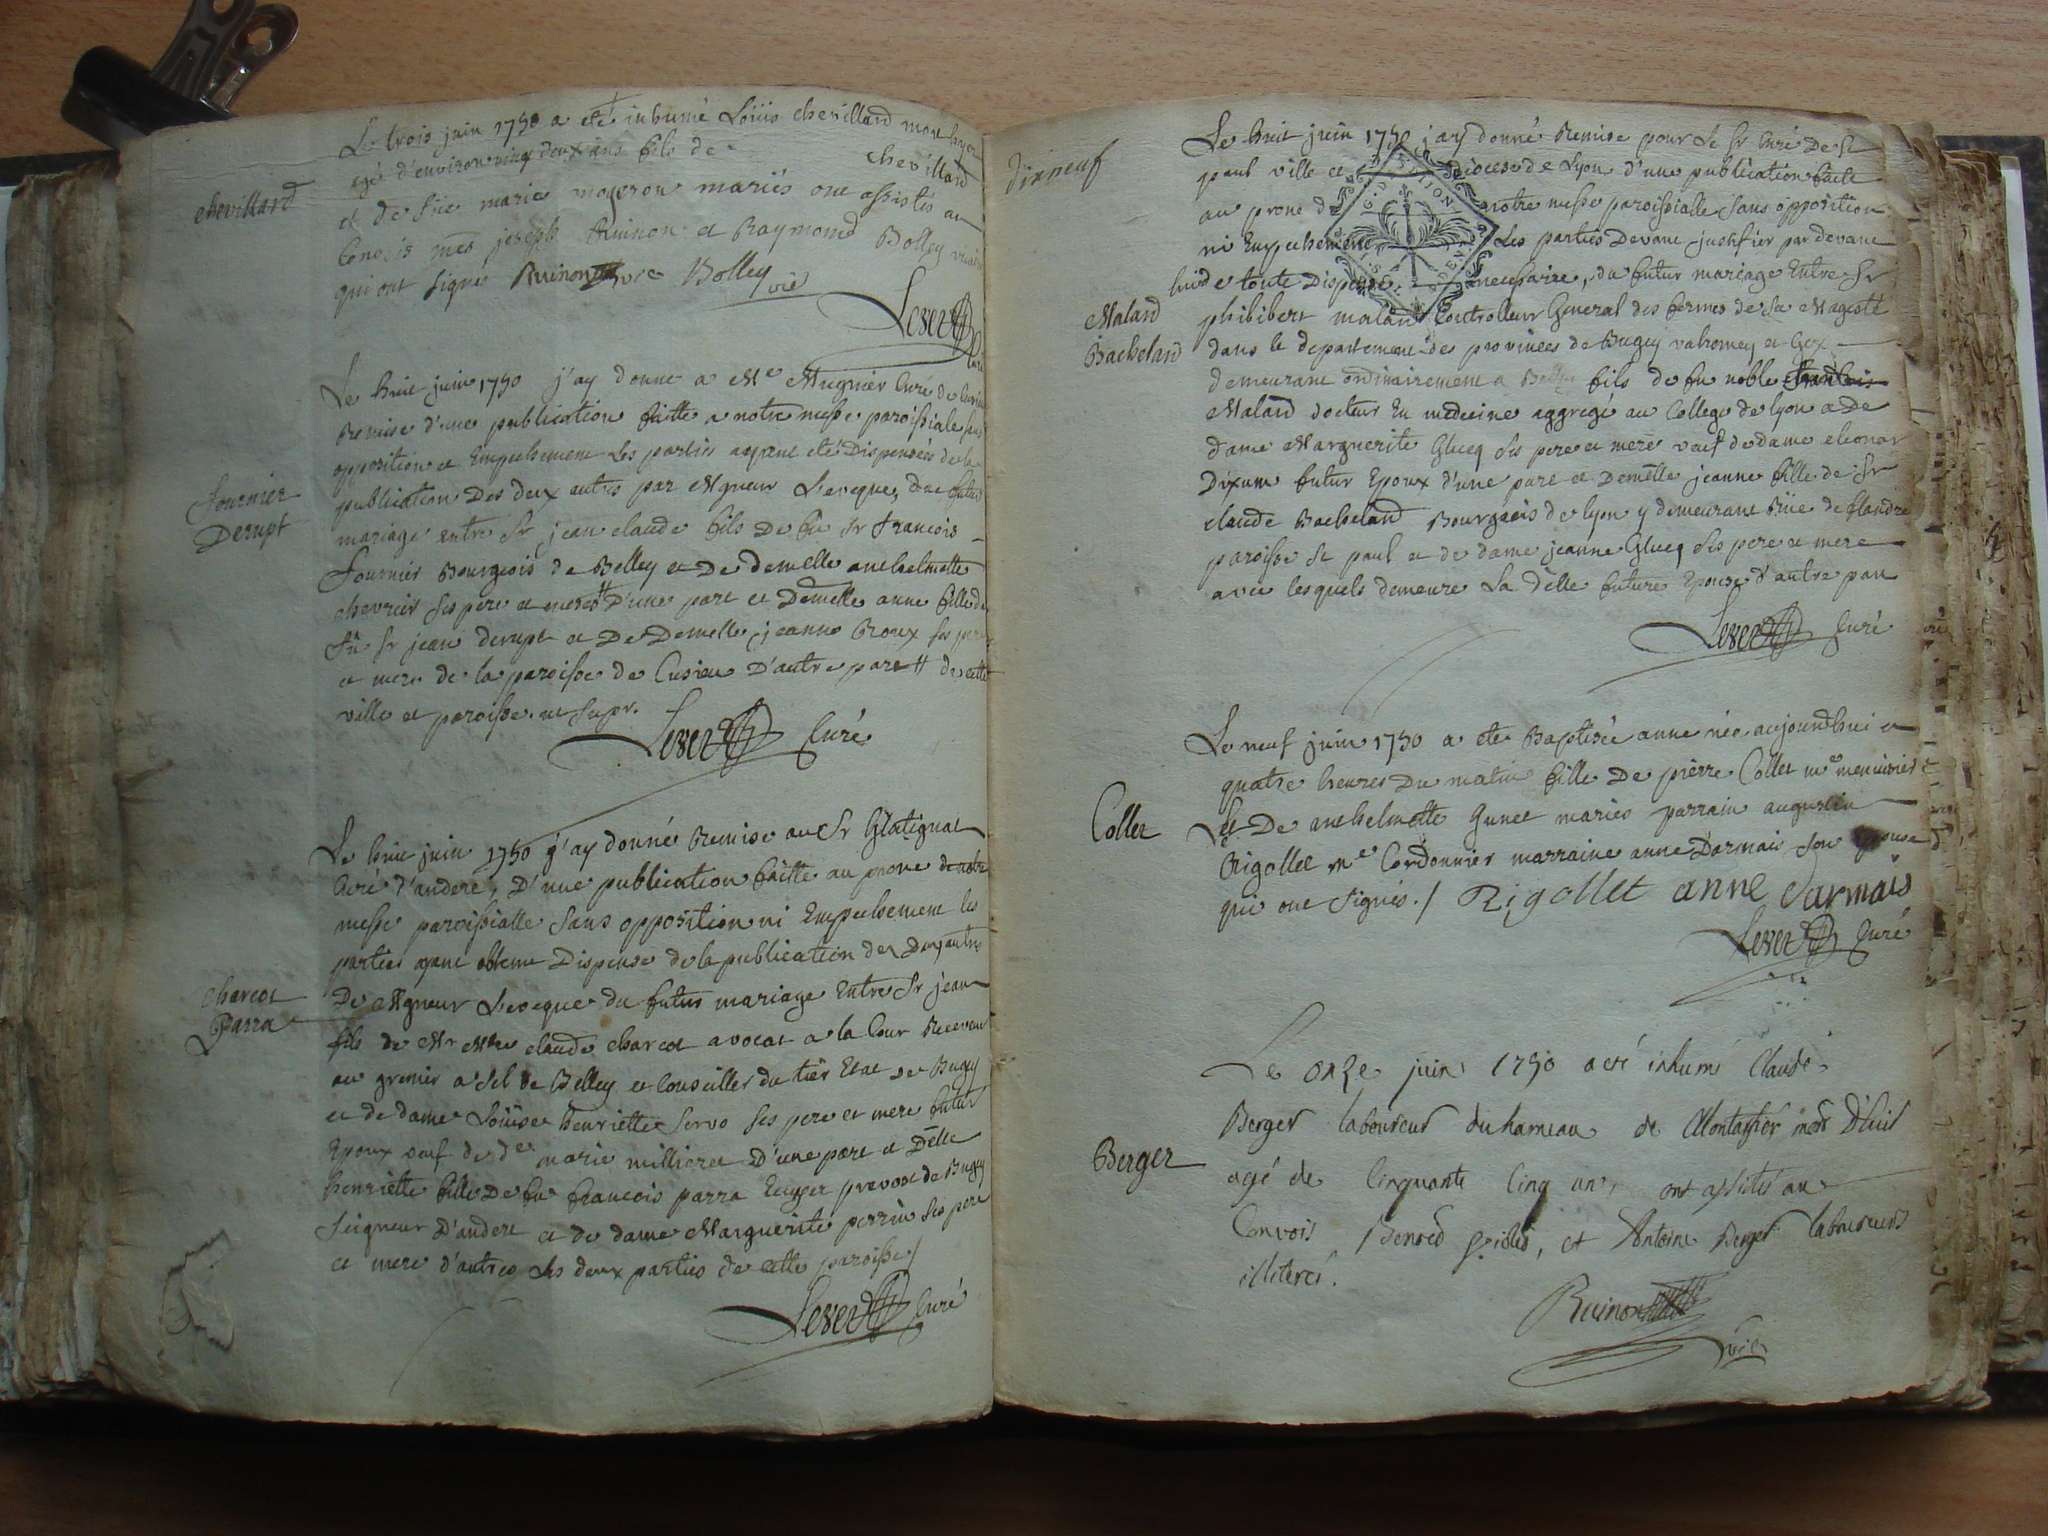 Le trois juin 1750 a eté inhumé Loüis chevillard mort hyer
agé d'environ vingt deux ans fils de - chevillard
chevillard
et de füe marie moyeron mariés ont assistés au
convois mes joseph Ruinon et Raymond Bolley vicaires
qui ont signés Ruinon vre Bolley vic
Lever
Curé
Le huit juin 1750 j'ay donné a Mre Mugnier Curé de
Remise d'une publication faitte a notre messe paroissiale sans
opposition et Empechement les parties ayant eté Dispensées de la
publication Des deux autres par Mgneur L'eveque, du futur
Fournier
Derupt
mariage entre Sr jean claude fils De fu Sr francois
fournier Bourgeois de Belley et De demelle anthelmette
chevrier ses pere et meres # D'une part et Demelle anne fille de
fû Sr jean derupt et De Demelle jeanne Roux ses pere
et mere de la paroisse de Cusieu D'autre part # de cette
ville et paroisse. ut supr.
Lever Curé
Le huit juin 1750 j'ay donné Remise au Sr Glatignat
Curé d'andert, D'une publication faitte au prone de notre
messe paroissialle sans opposition ni Empechement les
parties ayant obtenu Dispense de la publication des Deux autres
Charcot
Parra
De Mgneur L'eveque du futur mariage Entre Sr jean
fils de Mr Mtre claude charcot avocat a la Cour Receveur
au grenier a sel de Belley et Conseiller du tier Etat de Bugey
et de dame Loüise henriette Servo ses pere et mere futur
Epoux veuf de de marie millieret D'une part et Delle
henriette fille De fu francois parra Ecuyer prevost de Bugey
Seigneur D'andert et de dame Marguerite perrin ses pere
et mere d'autres les deux parties de cette paroisse /
Lever Curé
dixneuf
Le huit juin 1750 j'ay donné Remise pour le Sr Curé De St
paul ville et diocese de Lyon d'une publication faite
au prone de notre messe paroissialle sans opposition
G. D DIJON
ni Empechement Les parties Devant justifier par devant
luid e toute Dispense necessaire, du futur mariage Entre Sr
Malard
Bachelard
philibert malard Controlleur General des fermes de Sa Majesté
dans le departement des provinces de Bugey valromey et Gex
demeurant ordinairement a Belley fils de fu noble francois
Malard docteur En medecine aggregé au College de lyon et De
dame Marguerite Glucq ses pere et mere veuf de dame eleonor
Dixum futur Epoux d'une part et Demelle jeanne fille de Sr
claude Bachelard Bourgeois de lyon y demeurant Rüe de flandre
paroisse St paul et de dame jeanne Glucq ses pere et mere
avec lesquels demeure La delle future Epouse d'autre part
Lever Curé
Le neuf juin 1750 a eté Baptisée anne née aujourdhui a
quatre heures Du matin fille De pierre Collet me menuisier
Collet
et De anthelmette Gunet mariés parrain augustin
Rigollet me Cordonnier marraine anne Darmais son epouse
qui ont signés. / Rigollet anne darmais
Lever Curé
Le onze juin 1750 a eté inhumé Claude
Berger laboureur du hameau de Montarfier mort D'huit
Berger
agé de Cinquante Cinq ans, ont assistés au
Convois Benoed, et Antoine Berger laboureurs
illiterés.
Ruinon
vic